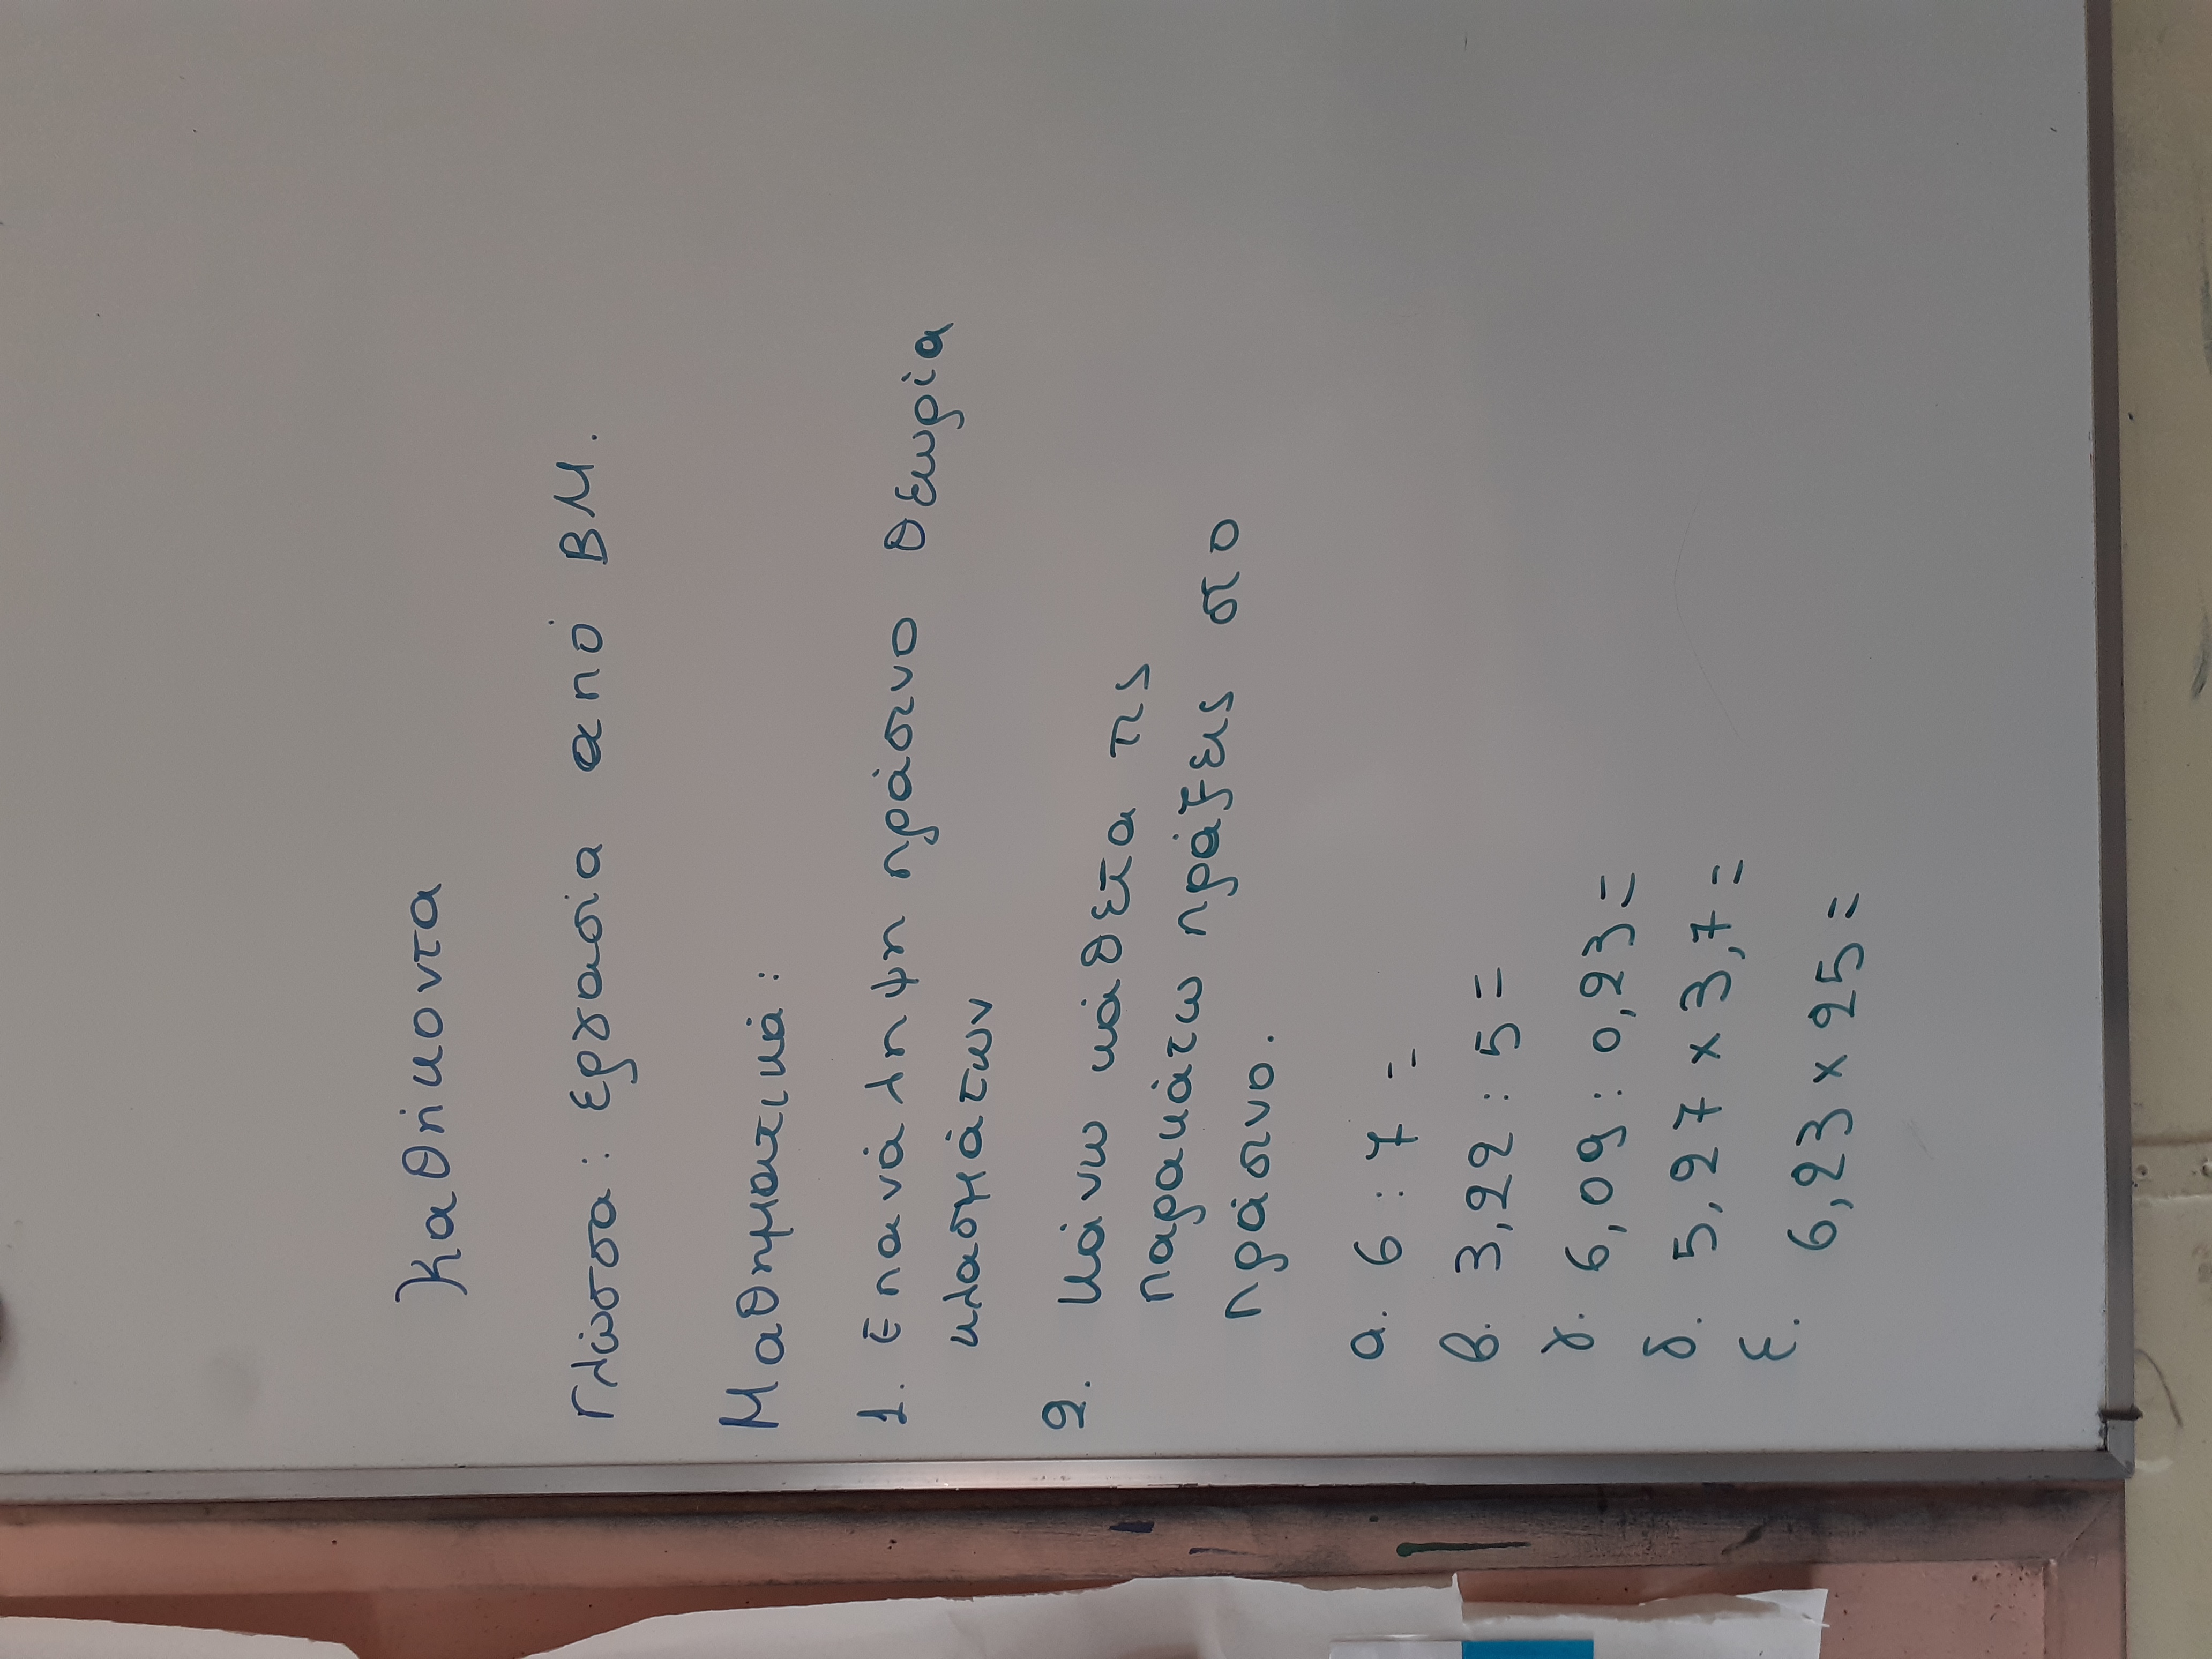 Καθήκοντα
Γλώσσα: εργασία από ΒΜ.
Μαθηματικά:
1. Επανάληψη πράσινο θεωρία
κλασμάτων
2. Κάνω κάθετα τις
παρακάτω πράξεις στο
πράσινο.
α. 6 : 7 =
β. 3,22 : 5 =
γ. 6,09 : 0,23 =
δ. 5,27 x 3,7 =
ε. 6,23 x 25 =